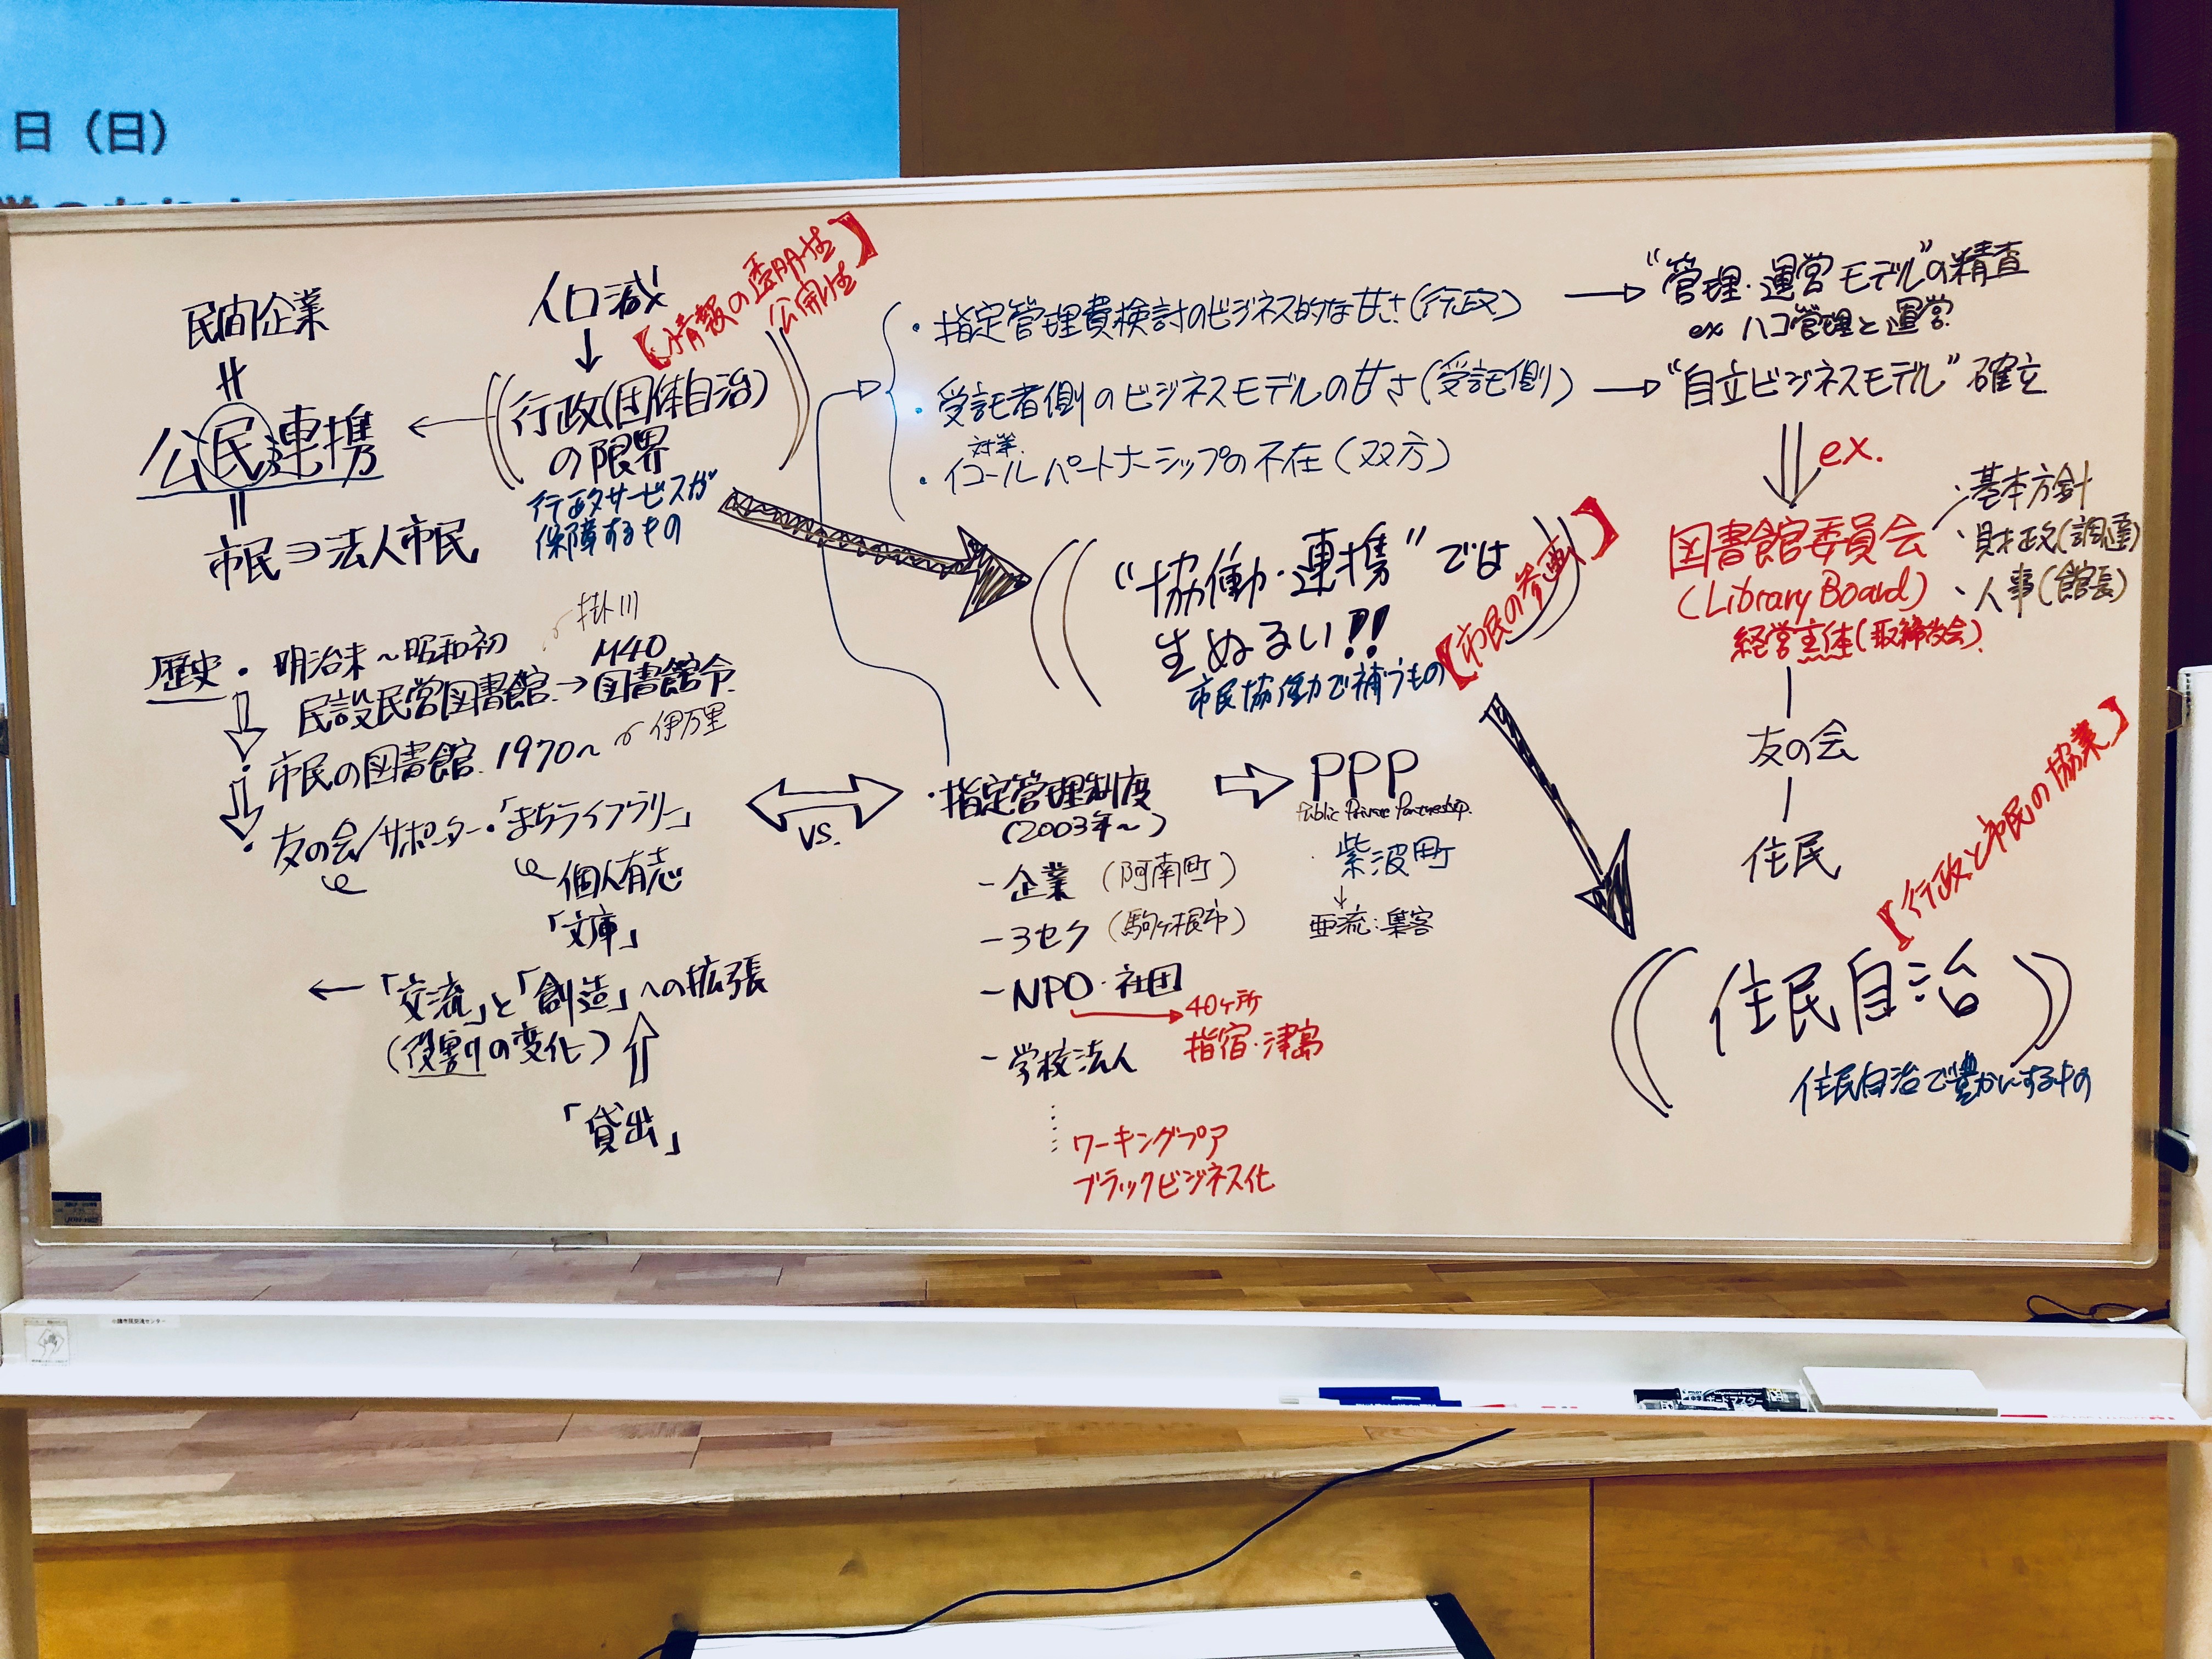 日（日）
民間企業
公民連携
市民⊃法人市民
人口減
↓
【情報の透明性
公開性】
行政(団体自治)
の限界
行政サービスが
保障するもの
・指定管理費検討のビジネス的な甘さ(行政)
→“管理・運営モデル”の精査
ex ハコ管理と運営
・受託者側のビジネスモデルの甘さ(受託側)
→“自立ビジネスモデル”確立
対等
・イコールパートナーシップの不在(双方)
ex.
図書館委員会
(Library Board)
経営主体(取締役会)
・基本方針
・財政(調達)
・人事(館長)
友の会
住民
“協働・連携”では
生ぬるい!!
市民協働で補うもの
【市民の参画】
歴史・明治末～昭和初
民設民営図書館→図書館令
掛川
M40
・市民の図書館 1970～
伊万里
・友の会/サポーター・「まちライブラリー」
個人有志
「文庫」
←「交流」と「創造」への拡張
(役割の変化)
「貸出」
vs.
・指定管理制度
(2003年～)
-企業 (阿南町)
-3セク (駒ヶ根市)
-NPO・社団
40ヶ所
指宿・津島
-学校法人
ワーキングプア
ブラックビジネス化
PPP
Public Private Partnership.
紫波町
↓
亜流:集客
【行政と市民の協業】
住民自治
住民自治で豊かにするもの
ボードマスター